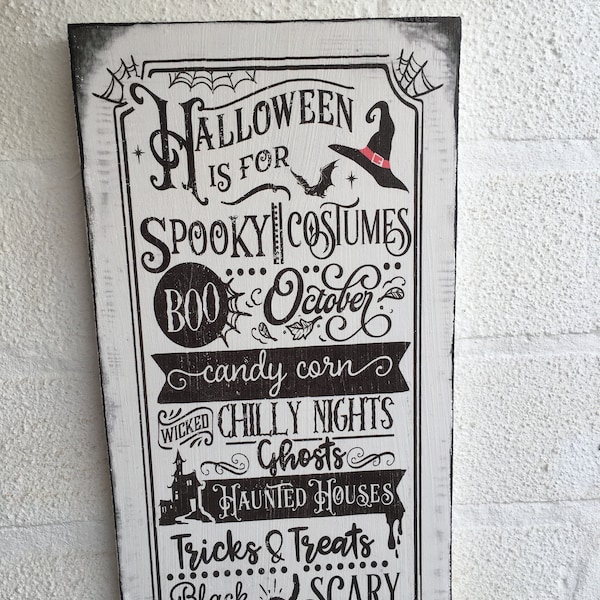 HALLOWEEN
IS FOR
SPOOKY COSTUMES
BOO October
candy corn
WICKED CHILLY NIGHTS
Ghosts
HAUNTED HOUSES
Tricks & Treats
Black SCARY